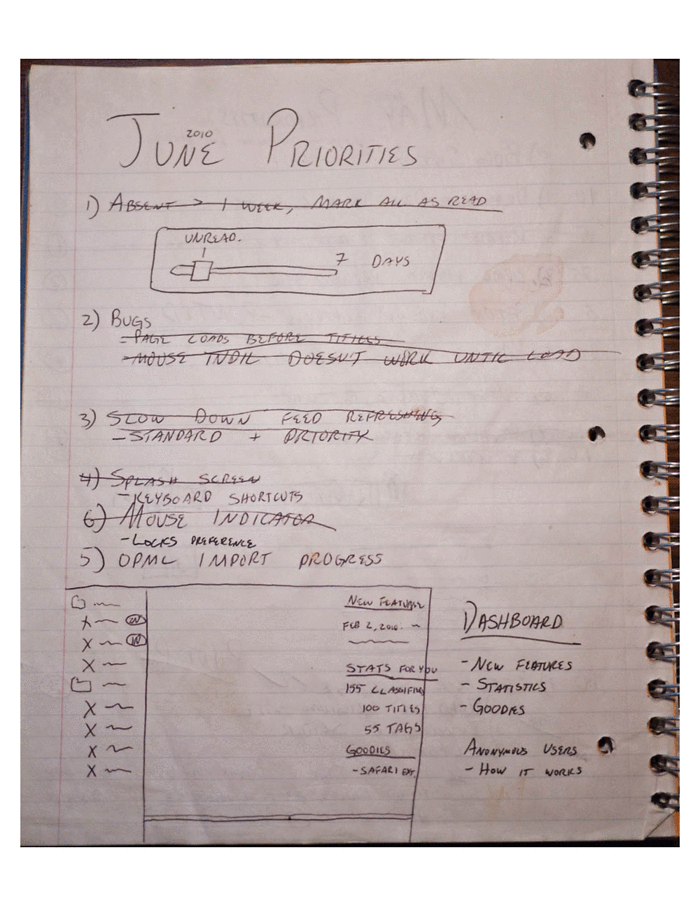 June 2010 Priorities
1) Absent > 1 week, mark all as read
Unread.
7 Days
2) Bugs
- Page loads before titles
- Mouse indic doesn't work until load
3) Slow down feed refreshing
- Standard + Priority
4) Splash screen
- Keyboard shortcuts
6) Mouse Indicator
- Locks preference
5) OPML import progress
New Features
Feb 2, 2010.
Stats for you
155 classifiers
100 titles
55 tags
Goodies
- Safari ext.
Dashboard
- New features
- Statistics
- Goodies
Anonymous users
- How it works